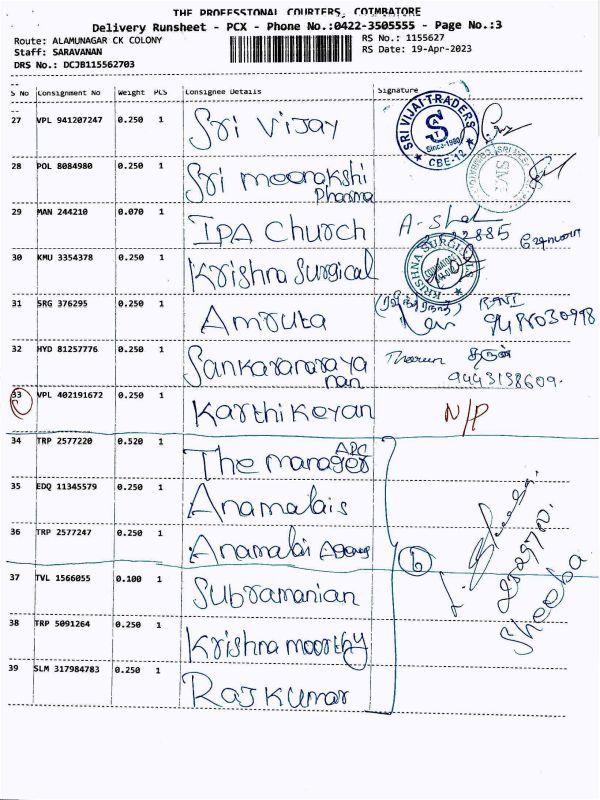 THE PROFESSIONAL COURIERS, COIMBATORE
Delivery Runsheet - PCX - Phone No.:0422-3505555 - Page No.:3
Route: ALAMUNAGAR CK COLONY
RS No.: 1155627
Staff: SARAVANAN
RS Date: 19-Apr-2023
DRS No.: DCJB115562703
S No Consignment No Weight PCS Consignee Details Signature
27 VPL 941207247 0.250 1 Sri Vijay
SRI VIJAI TRADERS
SAT
Since-1980
CBE-12
28 POL 8084980 0.250 1 Sri meenakshi
Pharma
29 MAN 244210 0.070 1 IPA Church
30 KMU 3354378 0.250 1 Krishna Surgical
KRISHNA SURGICALS
31 SRG 376295 0.250 1 Amruta
32 HYD 81257776 0.250 1 Sankaranaraya
nan
Tharun தருன்
9443198609.
33 VPL 402191672 0.250 1 Karthikeyan N/P
34 TRP 2577220 0.520 1 The manager
35 EDQ 11345579 0.250 1 Anamalais
36 TRP 2577247 0.250 1 Anamalai Agency
6
Sheeba
37 TVL 1566055 0.100 1 Subramanian
38 TRP 5091264 0.250 1 Krishna moorthy
39 SLM 317984783 0.250 1 Raj Kumar